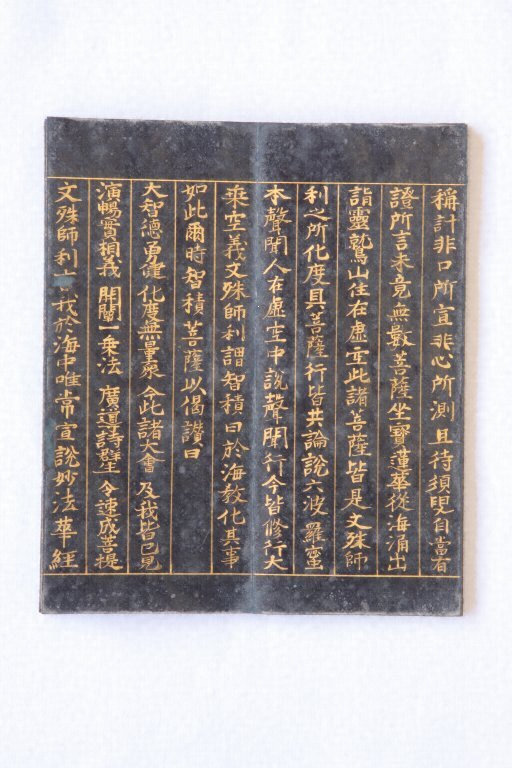 稱計非口所宣非心所測且待須臾自當有
證所言未竟無數菩薩坐寶蓮華從海涌出
詣靈鷲山住在虛空此諸菩薩皆是文殊師
利之所化度具菩薩行皆共論說六波羅蜜
本聲聞人在虛空中說聲聞行今皆修行大
乘空義文殊師利謂智積曰於海教化其事
如此爾時智積菩薩以偈讚曰
大智德勇健 化度無量衆 今此諸大會 及我皆已見
演暢實相義 開闡一乘法 廣導諸群生 令速成菩提
文殊師利言我於海中唯常宣說妙法華經